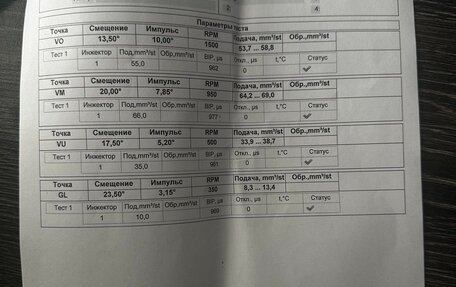 2
4
Параметры теста
Точка Смещение Импульс RPM Подача, mm³/st Обр.,mm³/st
VO 13,50° 10,00° 1500 53,7 ... 58,8
Тест 1 Инжектор Под,mm³/st Обр,mm³/st BIP, µs Откл., µs t,°C Статус
1 55,0 962 0
Точка Смещение Импульс RPM Подача, mm³/st Обр.,mm³/st
VM 20,00° 7,85° 950 64,2 ... 69,0
Тест 1 Инжектор Под,mm³/st Обр,mm³/st BIP, µs Откл., µs t,°C Статус
1 66,0 977 0
Точка Смещение Импульс RPM Подача, mm³/st Обр.,mm³/st
VU 17,50° 5,20° 500 33,9 ... 38,7
Тест 1 Инжектор Под,mm³/st Обр,mm³/st BIP, µs Откл., µs t,°C Статус
1 35,0 961 0
Точка Смещение Импульс RPM Подача, mm³/st Обр.,mm³/st
GL 23,50° 3,15° 350 8,3 ... 13,4
Тест 1 Инжектор Под,mm³/st Обр,mm³/st BIP, µs Откл., µs t,°C Статус
1 10,0 969 0